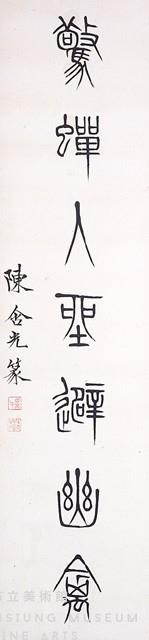 驚蟬人聖避幽禽
陳含光篆
立美術館
SIUNG MUSEUM
INE ARTS